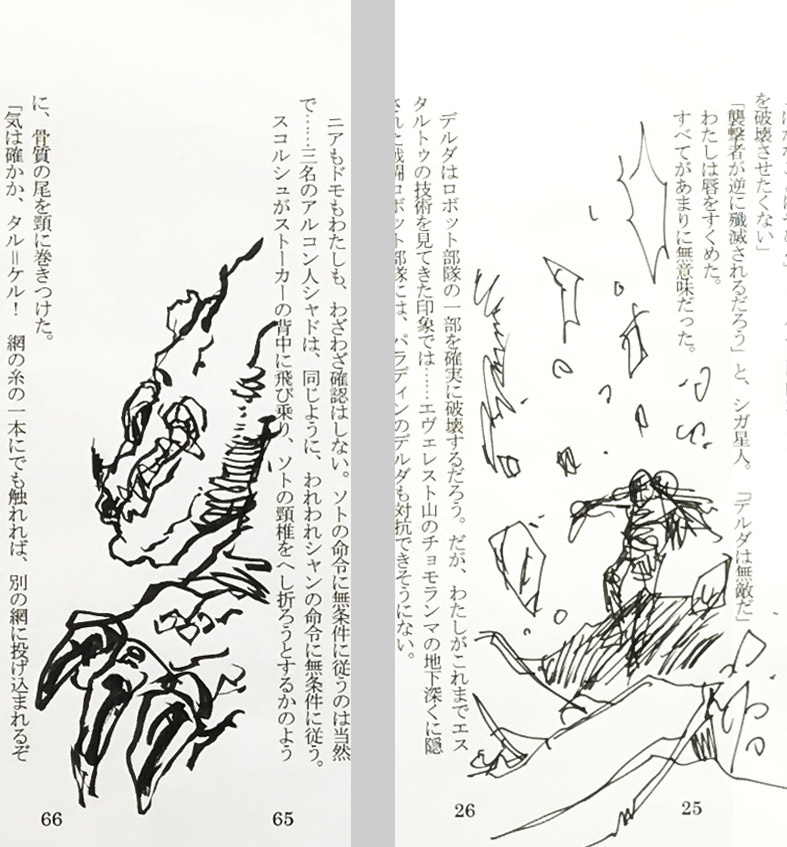 を破壊させたくない」
「襲撃者が逆に殲滅されるだろう」と、シガ星人。「デルダは無敵だ」
わたしは唇をすくめた。
すべてがあまりに無意味だった。
25
デルダはロボット部隊の一部を確実に破壊するだろう。だが、わたしがこれまでエス
タルトゥの技術を見てきた印象では……エヴェレスト山のチョモランマの地下深くに隠
された戦闘ロボット部隊には、パラディンのデルダも対抗できそうにない。
26
ニアもドモもわたしも、わざわざ確認はしない。ソトの命令に無条件に従うのは当然
で……三名のアルコン人シャドは、同じように、われわれシャンの命令に無条件に従う。
スコルシュがストーカーの背中に飛び乗り、ソトの頸椎をへし折ろうとするかのよう
65
に、骨質の尾を頸に巻きつけた。
「気は確かか、タル＝ケル！　網の糸の一本にでも触れれば、別の網に投げ込まれるぞ
66